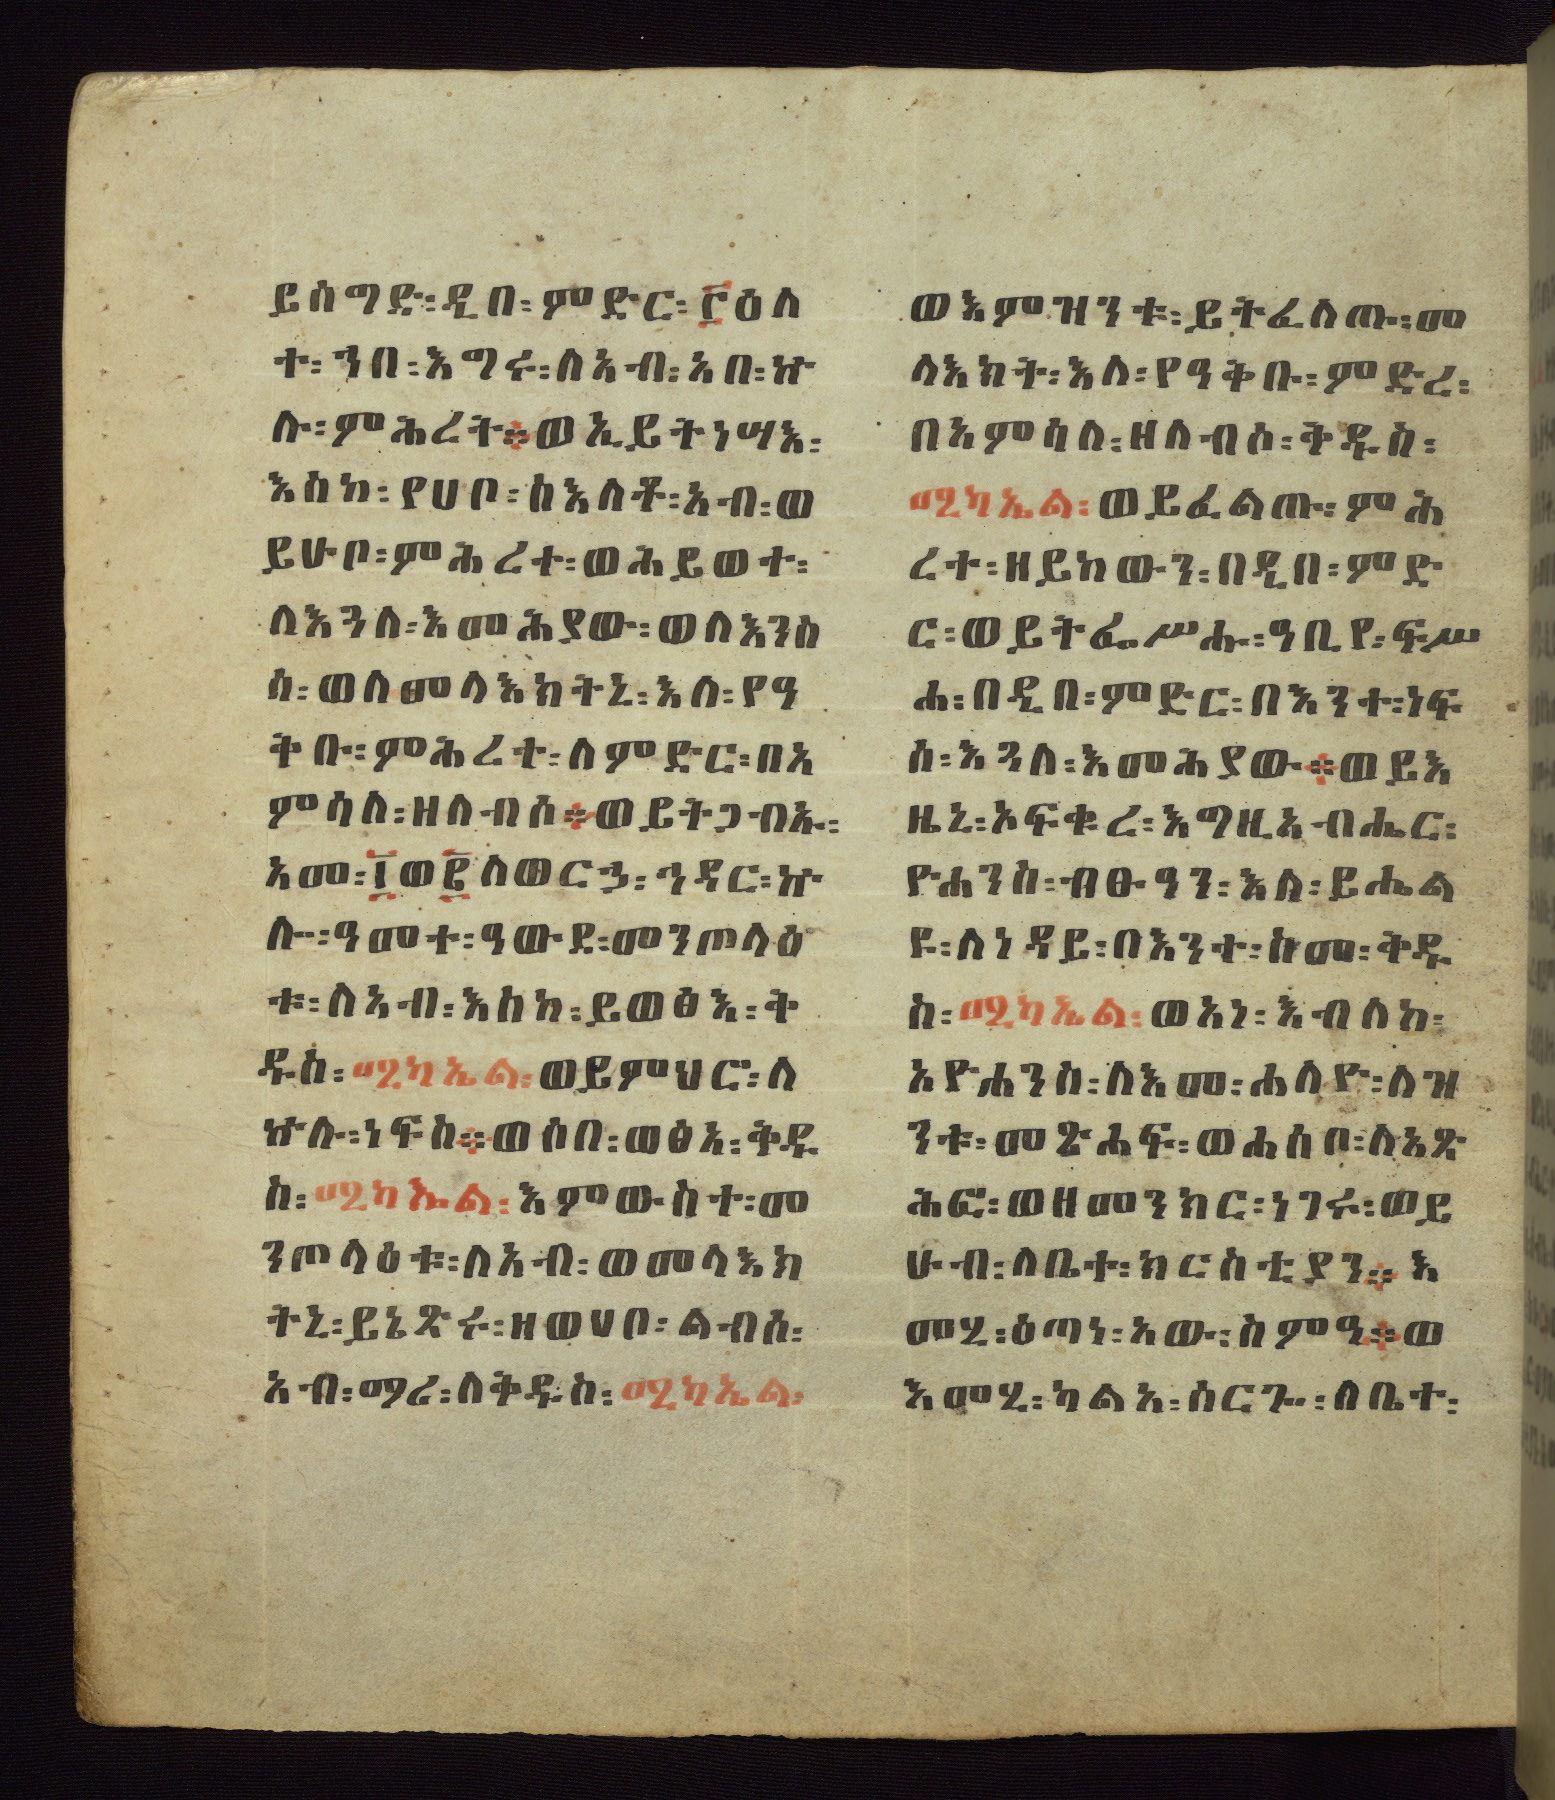 ይሰግድ፡ዲበ፡ምድር፡፫ዕለ
ተ፡ኀበ፡እግሩ፡ለአብ፡አበ፡ኵ
ሉ፡ምሕረት።ወኢይትነሣእ፡
እስከ፡የሀቦ፡ስእለቶ፡አብ፡ወ
ይሁቦ፡ምሕረተ፡ወሕይወተ፡
ለእጓለ፡እመሕያው፡ወለእንስ
ሳ፡ወለመላእክትኒ፡እለ፡የዓ
ትቡ፡ምሕረተ፡ለምድር፡በአ
ምሳለ፡ዘለብሰ።ወይትጋብኡ፡
አመ፡፲ወ፪ለወርኃ፡ኅዳር፡ኵ
ሎ፡ዓመተ፡ዓውደ፡መንጦላዕ
ቱ፡ለአብ፡እስከ፡ይወፅእ፡ቅ
ዱስ፡ሚካኤል፡ወይምህሮ፡ለ
ኵሉ፡ነፍስ።ወሶበ፡ወፅአ፡ቅዱ
ስ፡ሚካኤል፡እምውስተ፡መ
ንጦላዕቱ፡ለአብ፡ወመላእክ
ትኒ፡ይኔጽሩ፡ዘወሀቦ፡ልብሰ፡
አብ፡ማሬ፡ለቅዱስ፡ሚካኤል፡
ወእምዝንቱ፡ይትፈለጡ፡መ
ላእክት፡እለ፡የዓቅቡ፡ምድረ፡
በአምሳለ፡ዘለብሰ፡ቅዱስ፡
ሚካኤል፡ወይፈልጡ፡ምሕ
ረተ፡ዘይከውን፡በዲበ፡ምድ
ር፡ወይትፌሥሑ፡ዓቢየ፡ፍሥ
ሐ፡በዲበ፡ምድር፡በእንተ፡ነፍ
ሰ፡እጓለ፡እመሕያው።ወይእ
ዜኒ፡ኦፍቁረ፡እግዚአብሔር፡
ዮሐንስ፡ብፁዓን፡እለ፡ይሔል
ዩ፡ለነዳይ፡በእንተ፡ስመ፡ቅዱ
ስ፡ሚካኤል፡ወአነ፡እብለከ፡
አዮሐንስ፡ለእመ፡ሐለዮ፡ለዝ
ንቱ፡መጽሐፍ፡ወሐሰቦ፡ለአጽ
ሕፎ፡ወዘመንክር፡ነገሩ፡ወይ
ሁብ፡ለቤተ፡ክርስቲያን።እ
መሂ፡ዕጣነ፡አው፡ስምዓ።ወ
እመሂ፡ካልአ፡ሰርጐ፡ለቤተ፡